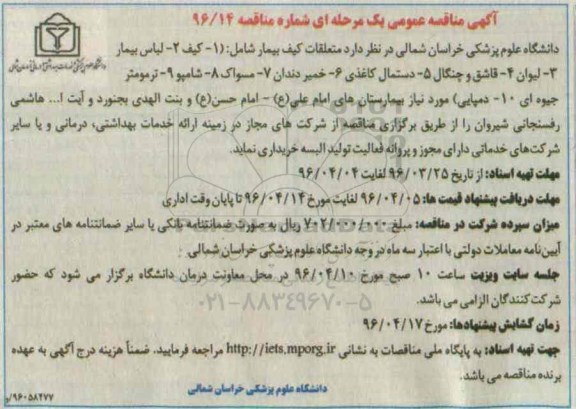 آگهی مناقصه عمومی یک مرحله ای شماره مناقصه ۹۶/۱۴
دانشگاه علوم پزشکی خراسان شمالی در نظر دارد متعلقات کیف بیمار شامل:(۱- کیف ۲- لباس بیمار
۳- لیوان ۴- قاشق و چنگال ۵- دستمال کاغذی ۶- خمیر دندان ۷- مسواک ۸- شامپو ۹- ترمومتر
جیوه ای ۱۰- دمپایی) مورد نیاز بیمارستان های امام علی(ع) - امام حسن(ع) و بنت الهدی بجنورد و آیت ا... هاشمی
رفسنجانی شیروان را از طریق برگزاری مناقصه از شرکت های مجاز در زمینه ارائه خدمات بهداشتی، درمانی و یا سایر
شرکت‌های خدماتی دارای مجوز و پروانه فعالیت تولید البسه خریداری نماید.
مهلت تهیه اسناد: از تاریخ ۹۶/۰۳/۲۵ لغایت ۹۶/۰۴/۰۴
مهلت دریافت پیشنهاد قیمت ها: ۹۶/۰۴/۰۵ لغایت مورخ ۹۶/۰۴/۱۴ تا پایان وقت اداری
میزان سپرده شرکت در مناقصه: مبلغ ۷۰۲/۰۰۰/۰۰۰ ریال به صورت ضمانتنامه بانکی یا سایر ضمانتنامه های معتبر در
آیین‌نامه معاملات دولتی با اعتبار سه ماه در وجه دانشگاه علوم پزشکی خراسان شمالی
جلسه سایت ویزیت ساعت ۱۰ صبح مورخ ۹۶/۰۴/۱۰ در محل معاونت درمان دانشگاه برگزار می شود که حضور
شرکت کنندگان الزامی می باشد.
۰۲۱-۸۸۳۴۹۶۷۰-۵
زمان گشایش پیشنهادها: مورخ ۹۶/۰۴/۱۷
جهت تهیه اسناد: به پایگاه ملی مناقصات به نشانی http://iets.mporg.ir مراجعه فرمایید. ضمناً هزینه درج آگهی به عهده
برنده مناقصه می باشد.
دانشگاه علوم پزشکی خراسان شمالی
۹۶۰۵۸۴۷۷/و